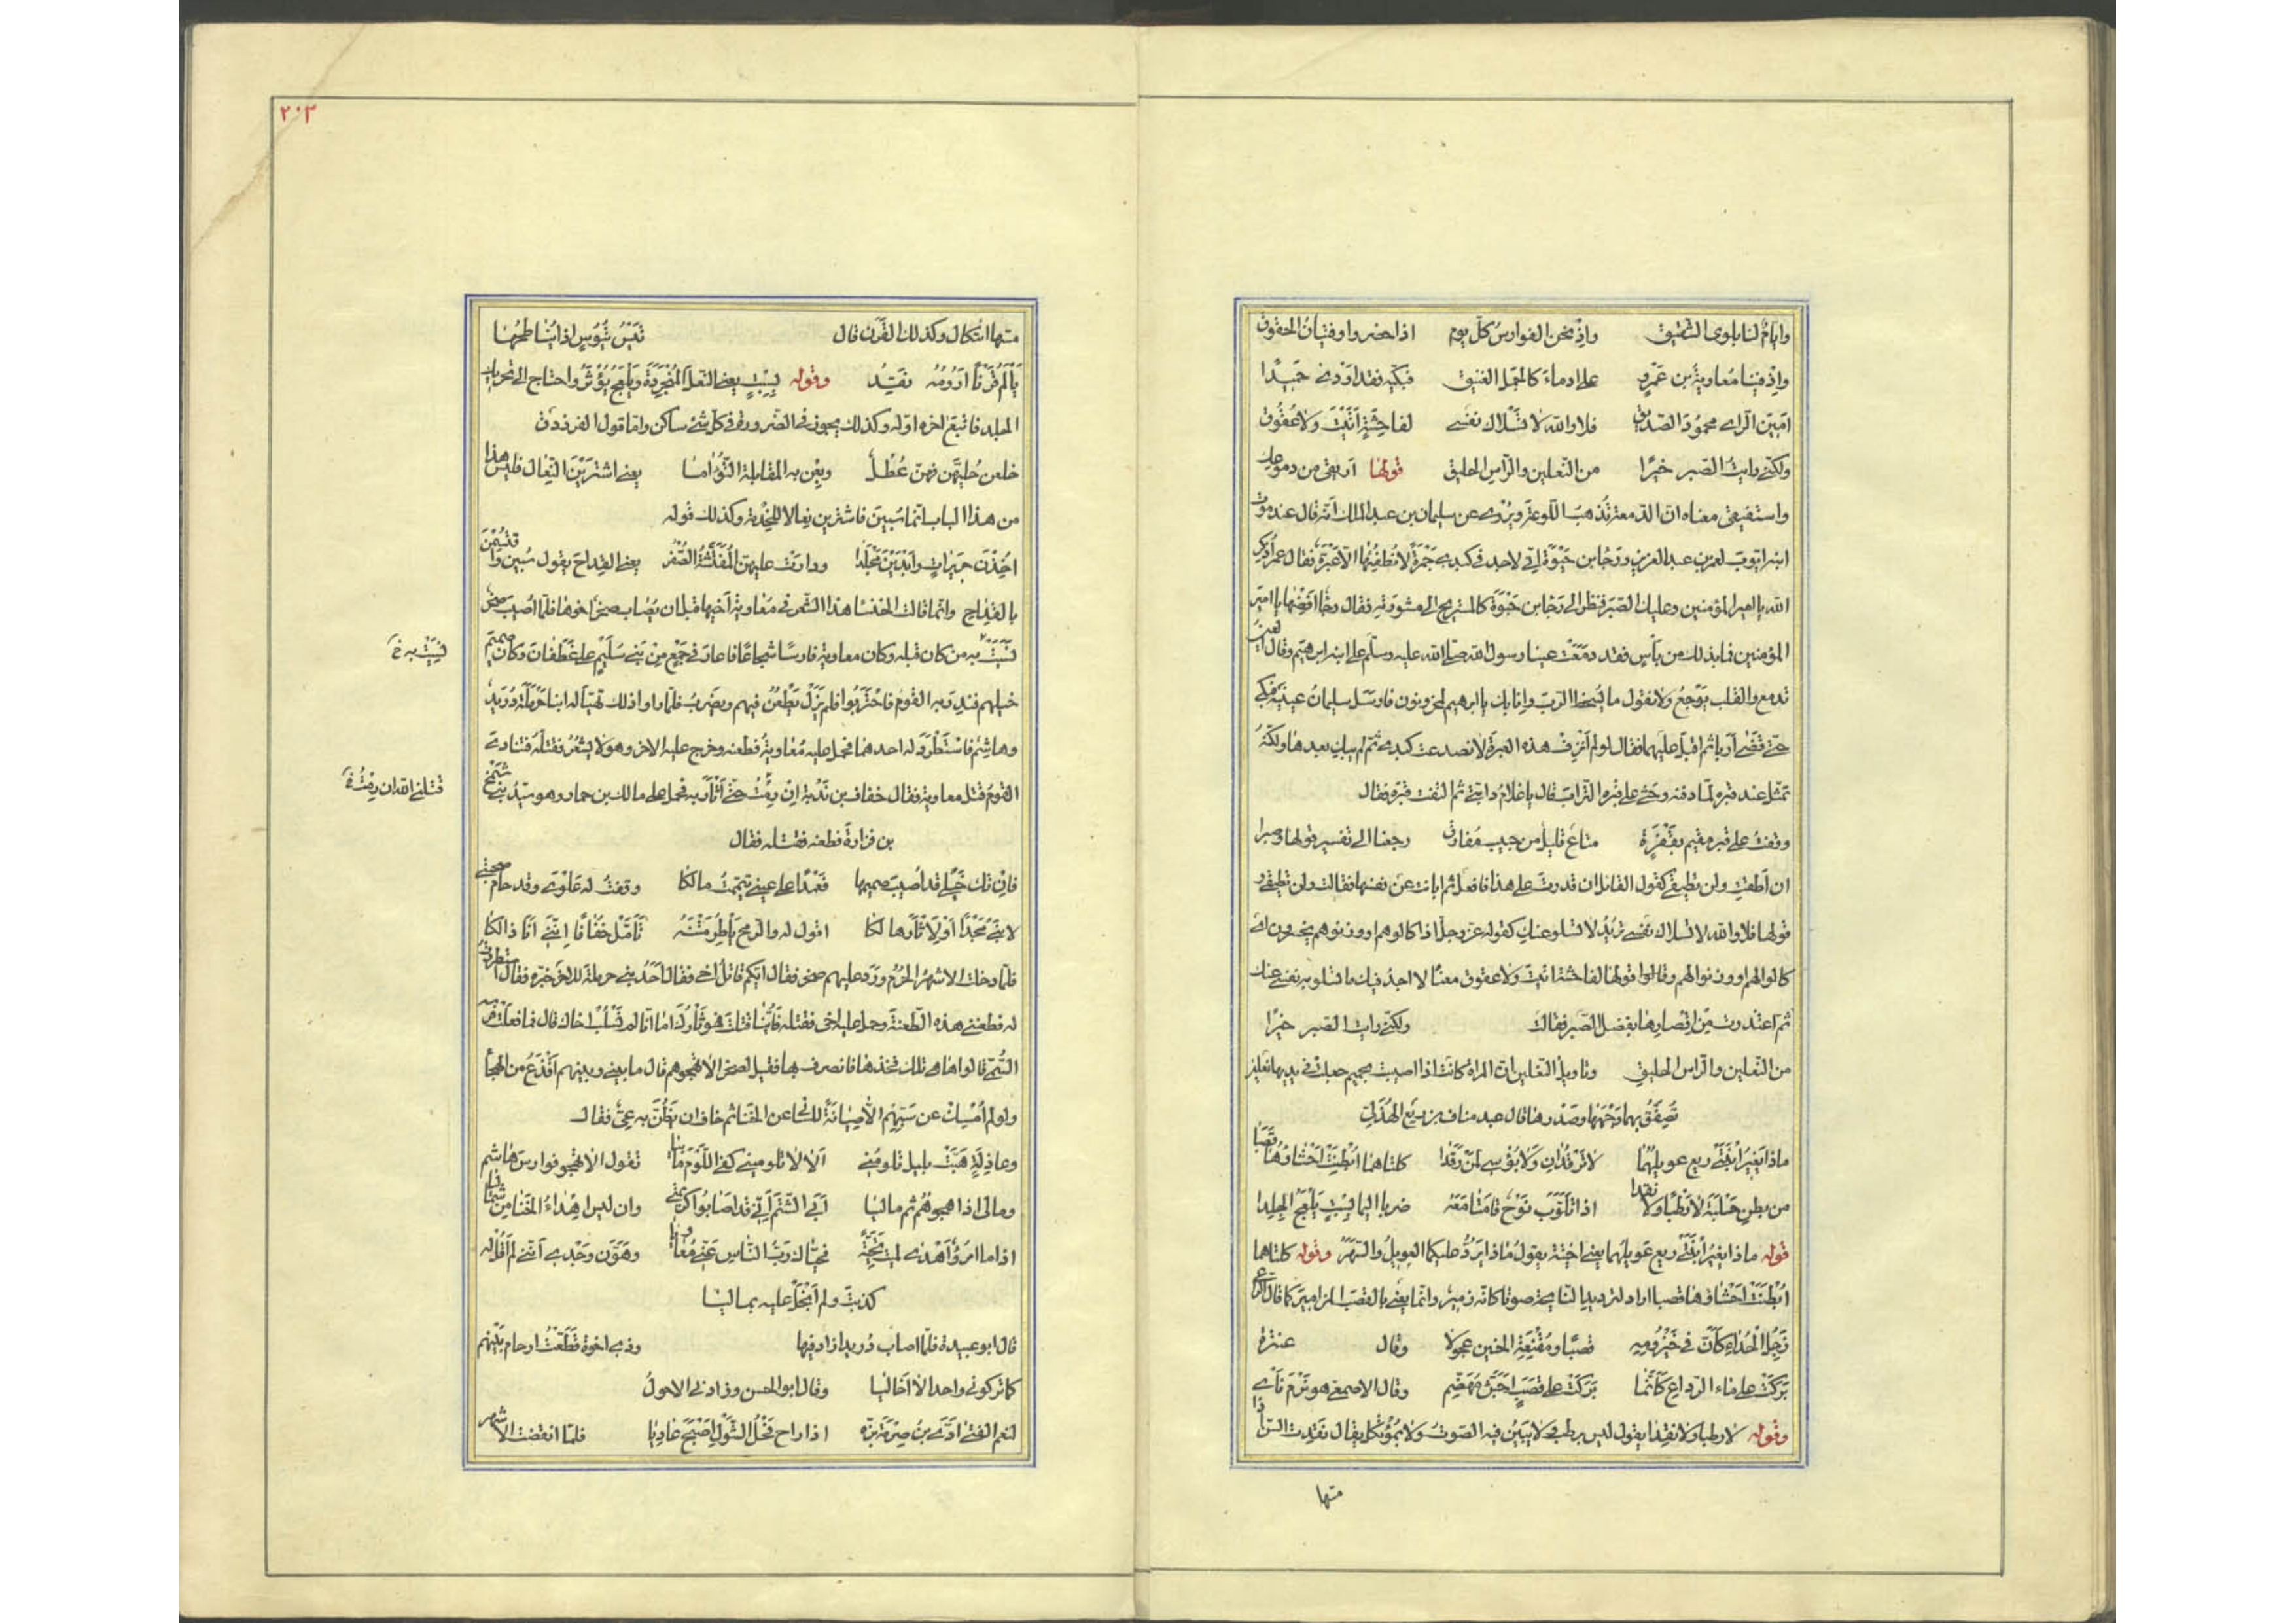 وايام لنا بلوى الشقيق واذ نحن الفوارس كل يوم اذا حضروا وفتيان الحقوق
واذ فينا معاوية بن عمرو على ادماء كالجمل الفنيق فبكيه فقد اودى حميدا
امين الراى محمود الصديق فلا والله لا تسلاك نفسى لفاحشة اتيت ولا عقوق
ولكنى رايت الصبر خيرا من النعلين والراس الحليق قولها اريقى من دموعك
واستفيقى معناه ان الدمعة تذهب اللوعة ويروى عن سليمان بن عبد الملك انه قال عند موت
ابنه ايوب لعمر بن عبد العزيز ورجا بن حيوة انى لاجد فى كبدى جمرة لا تطفئها الا عبرة فقال عمر اذكر
الله يا امير المؤمنين وعليك الصبر فنظر الى رجا بن حيوة كالمستريح الى مشورته فقال رجا افضها يا امير
المؤمنين فما بذلك من باس فقد دمعت عينا رسول الله صلى الله عليه وسلم على ابنه ابرهيم وقال العين
تدمع والقلب يوجع ولا نقول ما يسخط الرب وانا بك يا ابرهيم لمحزونون فارسل سليمان عينيه فبكى
حتى قضى اربا ثم اقبل عليهما فقال لو لم انزف هذه العبرة لانصدعت كبدى ثم لم يبك بعدها ولكنه
تمثل عند قبره لما دفنه وحثى على قبره التراب قال يا غلام دابتى ثم التفت الى قبره فقال
وقفت على قبر مقيم بقفرة متاع قليل من حبيب مفارق رجعنا الى تفسير قولها وصبرا
ان اطقت ولن تطيقى كقول القائل ان قدرت على هذا فافعل ثم ابانت عن نفسها فقالت ولن تطيقى و
قولها فلا والله لا تسلاك نفسى تريد لا تسلو عنك كقوله عز وجل اذا كالوهم او وزنوهم يخسرون اى
كالوا لهم او وزنوا لهم وقالوا قولها لفاحشة اتيت ولا عقوق معناه لا اجد فيك ما تسلو به نفسى عنك
ثم اعتذرت من اقصارها بفضل الصبر فقالت ولكنى رايت الصبر خيرا
من النعلين والراس الحليق وتاويل النعلين ان المراة كانت اذا اصيبت بحميم جعلت فى يديها نعلين
تصفق بهما وجهها وصدرها قال عبد مناف بن ربع الهذلى
ماذا يغير ابنتى ربع عويلهما لا ترقدان ولا بؤسى لمن رقدا كلتاهما ابطنت احشاؤها قصبا
من بطن حلية لا رطبا ولا نقدا اذا تاوب نوح قامتا معه ضربا اليما بسبت يلعج الجلدا
قوله ماذا يغير ابنتى ربع عويلهما يعنى اختيه يقول ماذا يرد عليكما العويل والسهر وقوله كلتاهما
ابطنت احشاؤها قصبا اراد لترديد النائحة صوتا كانه زمير وانما يعنى بالقصب المزامير كما قال الراعى
زجل الحداء كان فى حيزومه قصبا ومقنعة الحنين عجولا وقال عنترة
بركت على ماء الرداع كانما بركت على قصب اجش مهضم وقال الاصمعى هو نرم ناى
وقوله لا رطبا ولا نقدا يقول ليس برطب لا يبين فيه الصوت ولا بمؤتكل يقال نقدت السن اذا
منها
٢٠٣
منها ائتكال وكذلك القرن قال تيس تيوس اذا يناطحها
يالم قرنا ارومه نقد وقوله بسبت يعنى النعل المنجردة ويلعج يؤثر واحتاج الى تحريك
الجلد فاتبع اخره اوله وكذلك يجوز فى الضرورة فى كل شئ ساكن واما قول الفرزدق
خلعن حليهن فهن عطل وبعن به المقابلة التؤاما يعنى اشترين النعال فليس هذا
من هذا الباب انما سبين فاشترين نعالا للخدمة وكذلك قوله
اخذن حريرات وابدين مجلدا ودارت عليهن المقرمة الصفر يعنى القداح يقول سبين واقتسمن
بالقداح وانما قالت الخنسا هذا الشعر فى معاوية اخيها قبل ان يصاب صخر اخوها فلما اصيب صخر
نسيت به من كان قبله وكان معاوية فارسا شجاعا فاغار فى جمع من بنى سليم على غطفان وكان صميم
نسيت به خ
خيلهم فنذر به القوم فاحتربوا فلم يزل يطعن فيهم ويضرب فلما راوا ذلك تهيا له ابنا حرملة دريد
وهاشم فاستطرد له احدهما فحمل عليه معاوية فطعنه وخرج عليه الاخر وهو لا يشعر فقتله فتنادى
القوم قتل معاوية فقال خفاف بن ندبة ان رمت حتى اثار به فحمل على مالك بن حمار وهو سيد بنى شمخ
قتلنى الله ان رمت خ
بن فزارة فطعنه فقتله فقال
فان تك خيلى قد اصيب صميمها فعمدا على عينى تيممت مالكا وقفت له علوى وقد خام صحبتى
لابنى مجدا او لاثار هالكا اقول له والرمح ياطر متنه تامل خفافا اننى انا ذالكا
فلما دخلت الاشهر الحرم ورد عليهم صخر فقال ايكم قاتل اخى فقال احد بنى حرملة للاخر خبره فقال استطردت
له فطعننى هذه الطعنة وحمل عليه اخى فقتله فاينا قتلت فهو ثارك اما انا لم نسلب اخاك قال فما فعلت فرسه
السمى قالوا ها هى تلك فخذها فانصرف بها فقيل لصخر الا تهجوهم قال ما بينى وبينهم اقذع من الهجا
ولو لم امسك عن سبهم الا صيانة للسانى عن الخنا ثم خاف ان يظن به عى فقال
وعاذلة هبت بليل تلومنى الا لا تلومينى كفى اللوم ما بيا تقول الا تهجو فوارس هاشم
ومالى اذا اهجوهم ثم ماليا ابى الشتم انى قد اصابوا كريمتى وان ليس اهداء الخنا من شماليا
اذا ما امرؤ اهدى لميت تحية فحياك رب الناس عنى معاويا وهون وجدى اننى لم اقل له
كذبت ولم ابخل عليه بماليا
قال ابو عبيدة فلما اصاب دريدا زاد فيها وذى اخوة قطعت ارحام بينهم
كما تركونى واحدا لا اخا ليا وقال ابو الحسن وزادنى الاحول
لنعم الفتى ادى بن صرمة بزه اذا راح فحل الشول احدب عاريا فلما انقضت الاشهر